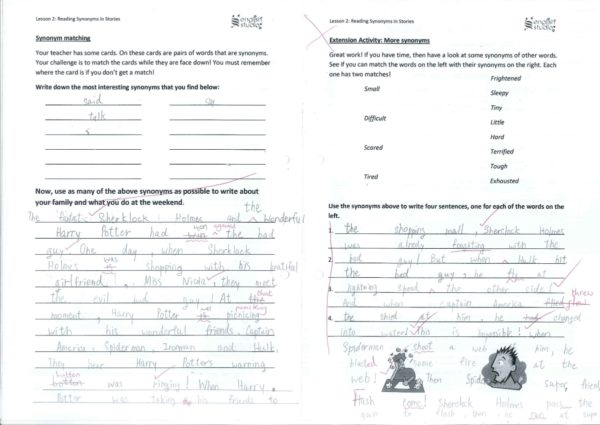 Lesson 2: Reading Synonyms in Stories
english studio
Synonym matching
Your teacher has some cards. On these cards are pairs of words that are synonyms.
Your challenge is to match the cards while they are face down! You must remember
where the card is if you don't get a match!
Write down the most interesting synonyms that you find below:
said say
talk
s
Now, use as many of the above synonyms as possible to write about
your family and what you do at the weekend.
the
The Sherklock Holmes and Wonderful
won against
Harry Potter had the bad
guy. One day, when Sherklock
was
Holmes shopping with his
girlfriend, Miss they meet
the evil bad guy! At that
moment, Harry Potter picnicing
with his wonderful friends, Captain
America, Spiderman, Ironman and Hulk.
They hear Harry Potters warning
button
botton was ringing! When Harry
Potter was his friends to
Lesson 2: Reading Synonyms in Stories
english studio
Extension Activity: More synonyms
Great work! If you have time, then have a look at some synonyms of other words.
See if you can match the words on the left with their synonyms on the right. Each
one has two matches!
Frightened
Small
Sleepy
Tiny
Difficult
Little
Hard
Scared
Terrified
Tough
Tired
Exhausted
Use the synonyms above to write four sentences, one for each of the words on the
left.
1. the shopping mall, Sherclock Holmes
was with the
2. bad guy! But when Hulk hit
the bad guy, he at
3. lightning speed the other side!
threw
And when captain America
4. the shied at him, he changed
into water! is impossible! when
Spiderman shoot a web him, he
fire at the
web! Then Spider super friend
Flash come! Sherclock Holmes the
to flash, then he at supe